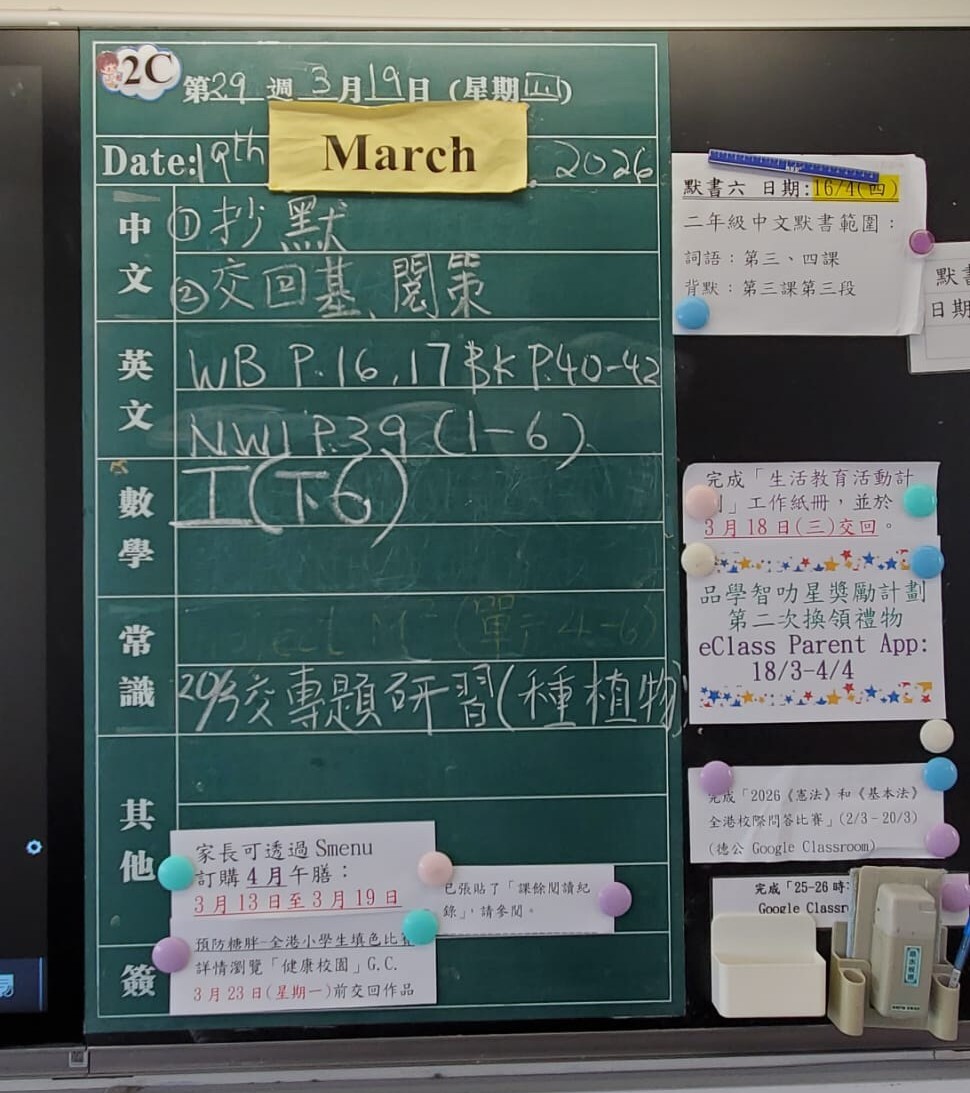 2C
第29週 3月19日 (星期四)
Date: 19th March 2026
中文
①抄默
②交回基、閱策
英文
WB P.16,17 BK P.40-42
NW1 P.39 (1-6)
數學
工(下6)
常識
(單元4-6)
20/3交專題研習(種植物)
其他
家長可透過 Smenu
訂購 4月午膳：
3月13日至3月19日
已張貼了「課餘閱讀紀
錄」，請參閱。
簽
預防糖胖-全港小學生填色比賽
詳情瀏覽「健康校園」G.C.
3月23日(星期一)前交回作品
默書六 日期:16/4(四)
二年級中文默書範圍：
詞語：第三、四課
背默：第三課第三段
默書
日期
完成「生活教育活動計
」工作紙冊，並於
3月18日(三)交回。
品學智叻星獎勵計劃
第二次換領禮物
eClass Parent App:
18/3-4/4
完成「2026《憲法》和《基本法》
全港校際問答比賽」(2/3-20/3)
(德公 Google Classroom)
完成「25-26 時
Google Classr